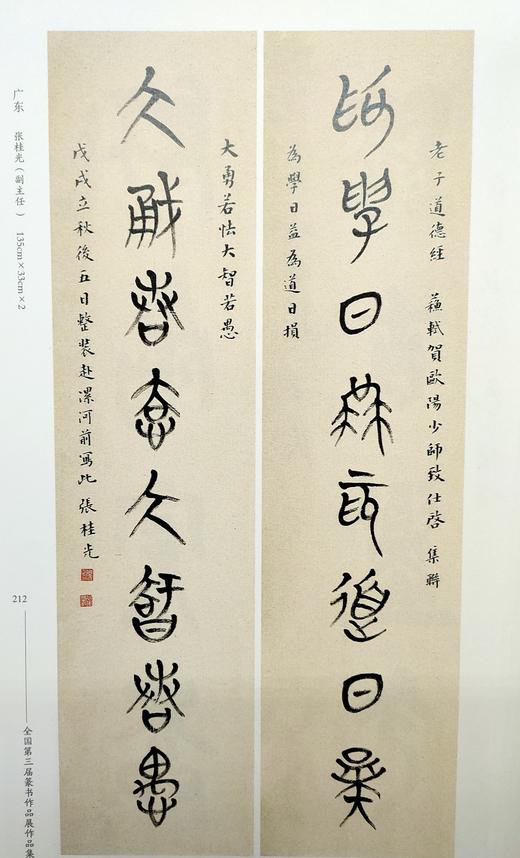 老子道德經 蘇軾賀歐陽少師致仕啓 集聯
為學日益為道日損
為學日益為道日損
大勇若怯大智若愚
大勇若怯大智若愚
戊戌立秋後五日整裝赴漯河前寫此 張桂光
广东 张桂光（副主任） 135cm×33cm×2
212
全国第三届篆书作品展作品集